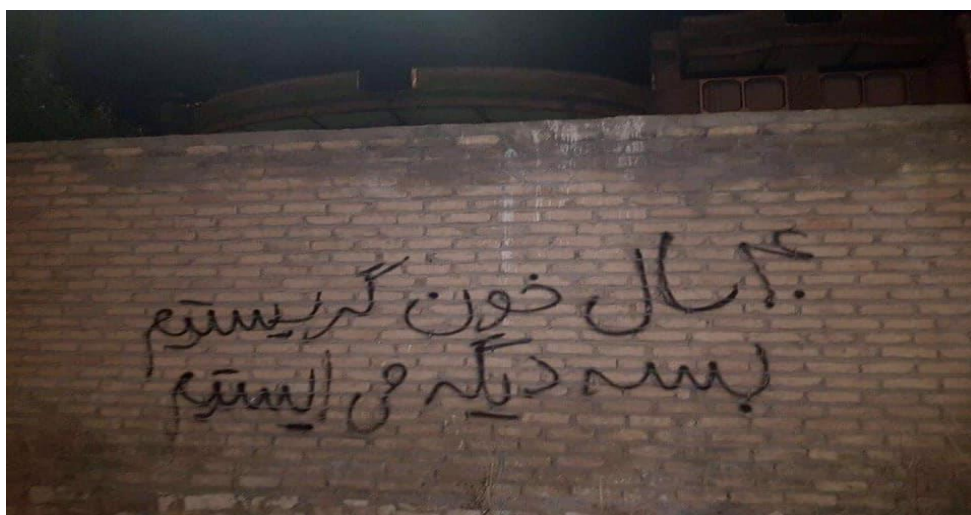 ۴۰ سال خون گریستیم
بسه دیگه می ایستیم